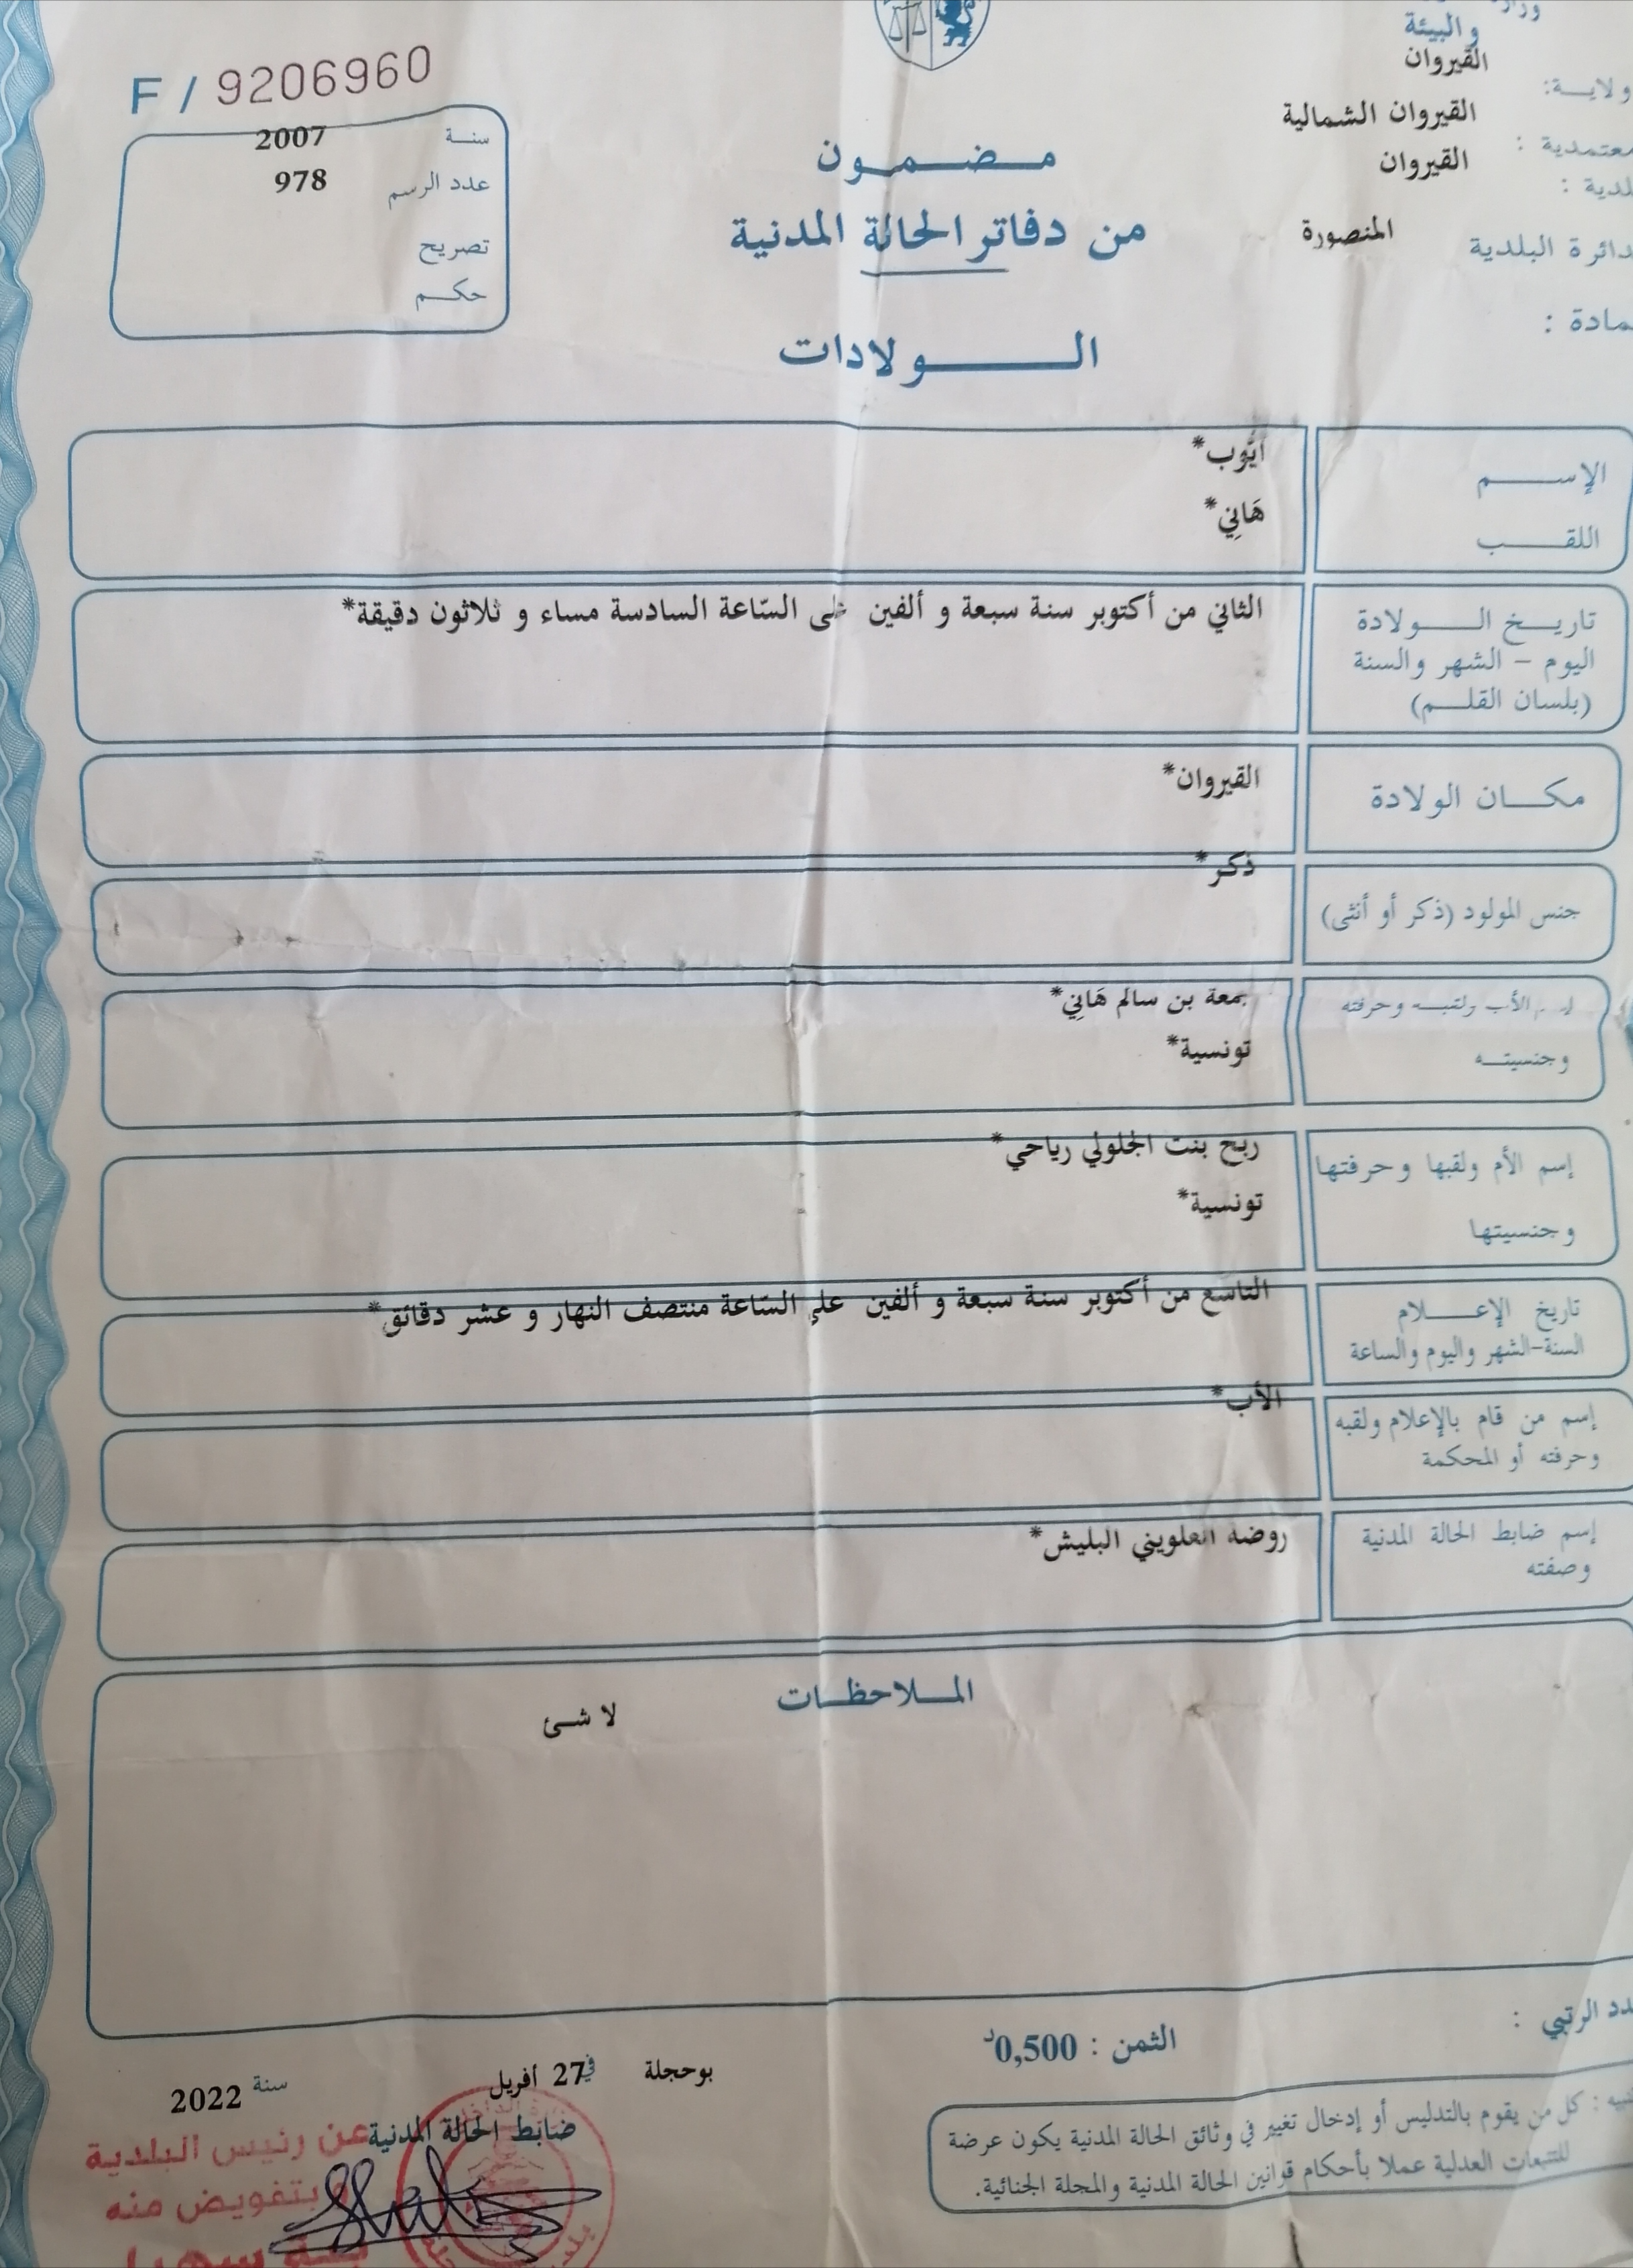 والبيئة
القيروان
ولاية:
القيروان الشمالية
معتمدية :
القيروان
المنصورة
دائرة البلدية
F / 9206960
سنة 2007
عدد الرسم 978
تصريح
حكم
مضمون
من دفاتر الحالة المدنية
الولادات
الإسم
أيّوب*
اللقب
هَانِي*
تاريخ الولادة
اليوم - الشهر والسنة
(بلسان القلم)
الثاني من أكتوبر سنة سبعة و ألفين على السّاعة السادسة مساء و ثلاثون دقيقة*
مكان الولادة
القيروان*
جنس المولود (ذكر أو أنثى)
ذكر*
الأب ولقبه وحرفته
وجنسيته
بن سالم هَانِي*
تونسية*
إسم الأم ولقبها وحرفتها
وجنسيتها
ربح بنت الجلولي رياحي*
تونسية*
تاريخ الإعلام
السنة-الشهر واليوم والساعة
التاسع من أكتوبر سنة سبعة و ألفين على السّاعة منتصف النهار و عشر دقائق*
إسم من قام بالإعلام ولقبه
وحرفته أو المحكمة
الأب*
إسم ضابط الحالة المدنية
وصفته
روضة العلويني البليش*
الملاحظات
لا شئ
الرتبي :
الثمن : 0,500د
كل من يقوم بالتدليس أو إدخال تغيير في وثائق الحالة المدنية يكون عرضة
للتتبعات العدلية عملا بأحكام قوانين الحالة المدنية والمجلة الجنائية.
بوحجلة في 27 أفريل سنة 2022
ضابط الحالة المدنية
عن رئيس البلدية
وبتفويض منه